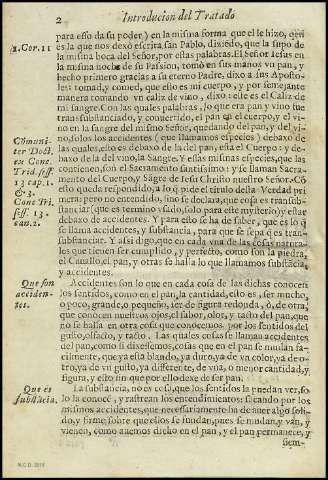 2 Introducion del Tratado
1. Cor. 11
para esso da su poder) en la misma forma que el le hizo, q̃ es
es la que nos dexò escrita san Pablo, diziẽdo, que la supo de
la misma boca del Señor, por estas palabras. El Señor Iesus en
la misma noche de su Passion, tomò en sus manos vn pan, y
hecho primero gracias a su eterno Padre, dixo a sus Aposto-
les: tomad, y comed, que esto es mi cuerpo, y por semejante
manera tomando vn caliz de vino, dixo: este es el Caliz de
mi sangre. Con las quales palabras, lo que era pan y vino fue
transubstanciado, y conuertido, el pan en el cuerpo, y el vi-
no en la sangre del mismo señor, quedando del pan, y del vi-
no, solos los accidentes (que llamamos especies) debaxo de
las quales, esto es debaxo de la del pan, està el Cuerpo: y de-
baxo de la del vino, la Sangre. Y estas mismas especies, que las
contienen, son el Sacramento santissimo: y se llaman Sacra-
mento del Cuerpo, y Sãgre de Iesu Christo nuestro Señor. Cõ
esto queda respondido, a lo q̃ pide el titulo desta Verdad pri
mera: pero no entendido, sino se declara, que cosa es transub-
stanciar (que es termino vsado, solo para este misterio) y estar
debaxo de accidentes. Y para esto se ha de saber, que es lo q̃
se llama accidentes, y substancia, para que se sepa q̃ es tran-
substanciar. Y assi digo, que en cada vna de las cosas natura-
les que tienen ser cumplido, y perfecto, como son la piedra,
el Cauallo, el pan, y otras se halla lo que llamamos substãcia,
y accidentes.
Cõmuni-
ter Doct.
ex Conc.
Trid. sess.
13 cap. 1.
& 3.
Conc Tri.
sess. 13.
can. 2.
Que son
acciden-
tes.
Accidentes son lo que en cada cosa de las dichas conocen
los sentidos, como en el pan, la cantidad, esto es, ser mucho,
o poco, grande, o pequeño, ser de figura redonda, ò, de otra,
que conocen nuestros ojos, el sabor, olor, y tacto del pan, que
no se halla en otra cosa que conocemos por los sentidos del
gusto, olfacto, y tacto. Las quales cosas se llaman accidentes
del pan, como si dixessemos, cosas que en el pan se mudan fa-
cilmente, que ya està blando, ya duro, ya de vn color, ya de o-
tro, ya de vn gusto, ya diferente, de vna, o mayor cantidad, y
figura, y esto sin que por esso dexe de ser pan.
Que es
substãcia.
La substancia, no es cosa, que los sentidos la puedan ver, so-
lo la conocẽ, y rastrean los entendimientos: sacando por los
mismos accidentes, que necessariamente ha de auer algo soli-
do, y firme sobre que ellos se mudan, pues se mudan, y van, y
vienen, como auemos dicho en el pan, y el pan permanece, y
siem-